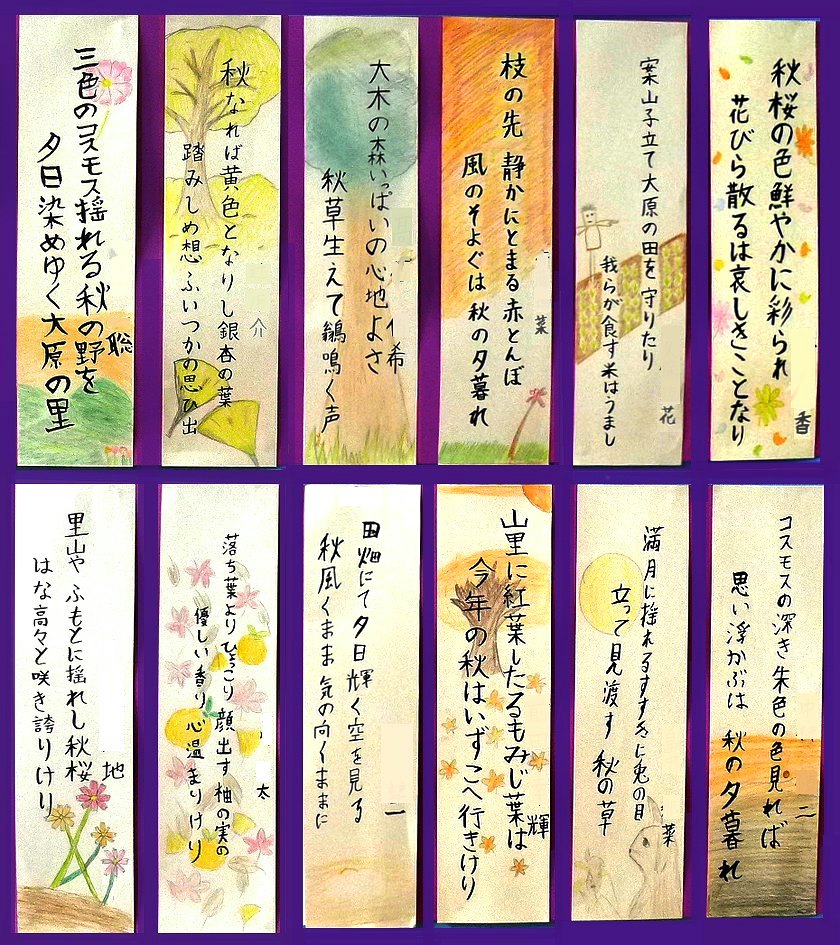 秋桜の色鮮やかに彩られ
花びら散るは哀しきことなり
香
案山子立て大原の田を守りたり
我らが食す米はうまし
花
枝の先 静かにとまる赤とんぼ
風のそよぐは 秋の夕暮れ
葉
大木の森いっぱいの心地よさ
秋草生えて鶲鳴く声
希
秋なれば黄色となりし銀杏の葉
踏みしめ想ふいつかの思ひ出
介
三色のコスモス揺れる秋の野を
夕日染めゆく大原の里
聡
コスモスの深き朱色の色見れば
思い浮かぶは 秋の夕暮れ
二
満月に揺れるすすきに兎の目
立って見渡す 秋の草
菜
山里に紅葉したるもみじ葉は
今年の秋はいずこへ行きけり
輝
田畑にて夕日輝く空を見る
秋風くまま 気の向くままに
一
落ち葉よりひょっこり顔出す柚の実の
優しい香り、心温まりけり
太
里山や ふもとに揺れし秋桜
はな高々と咲き誇りけり
地